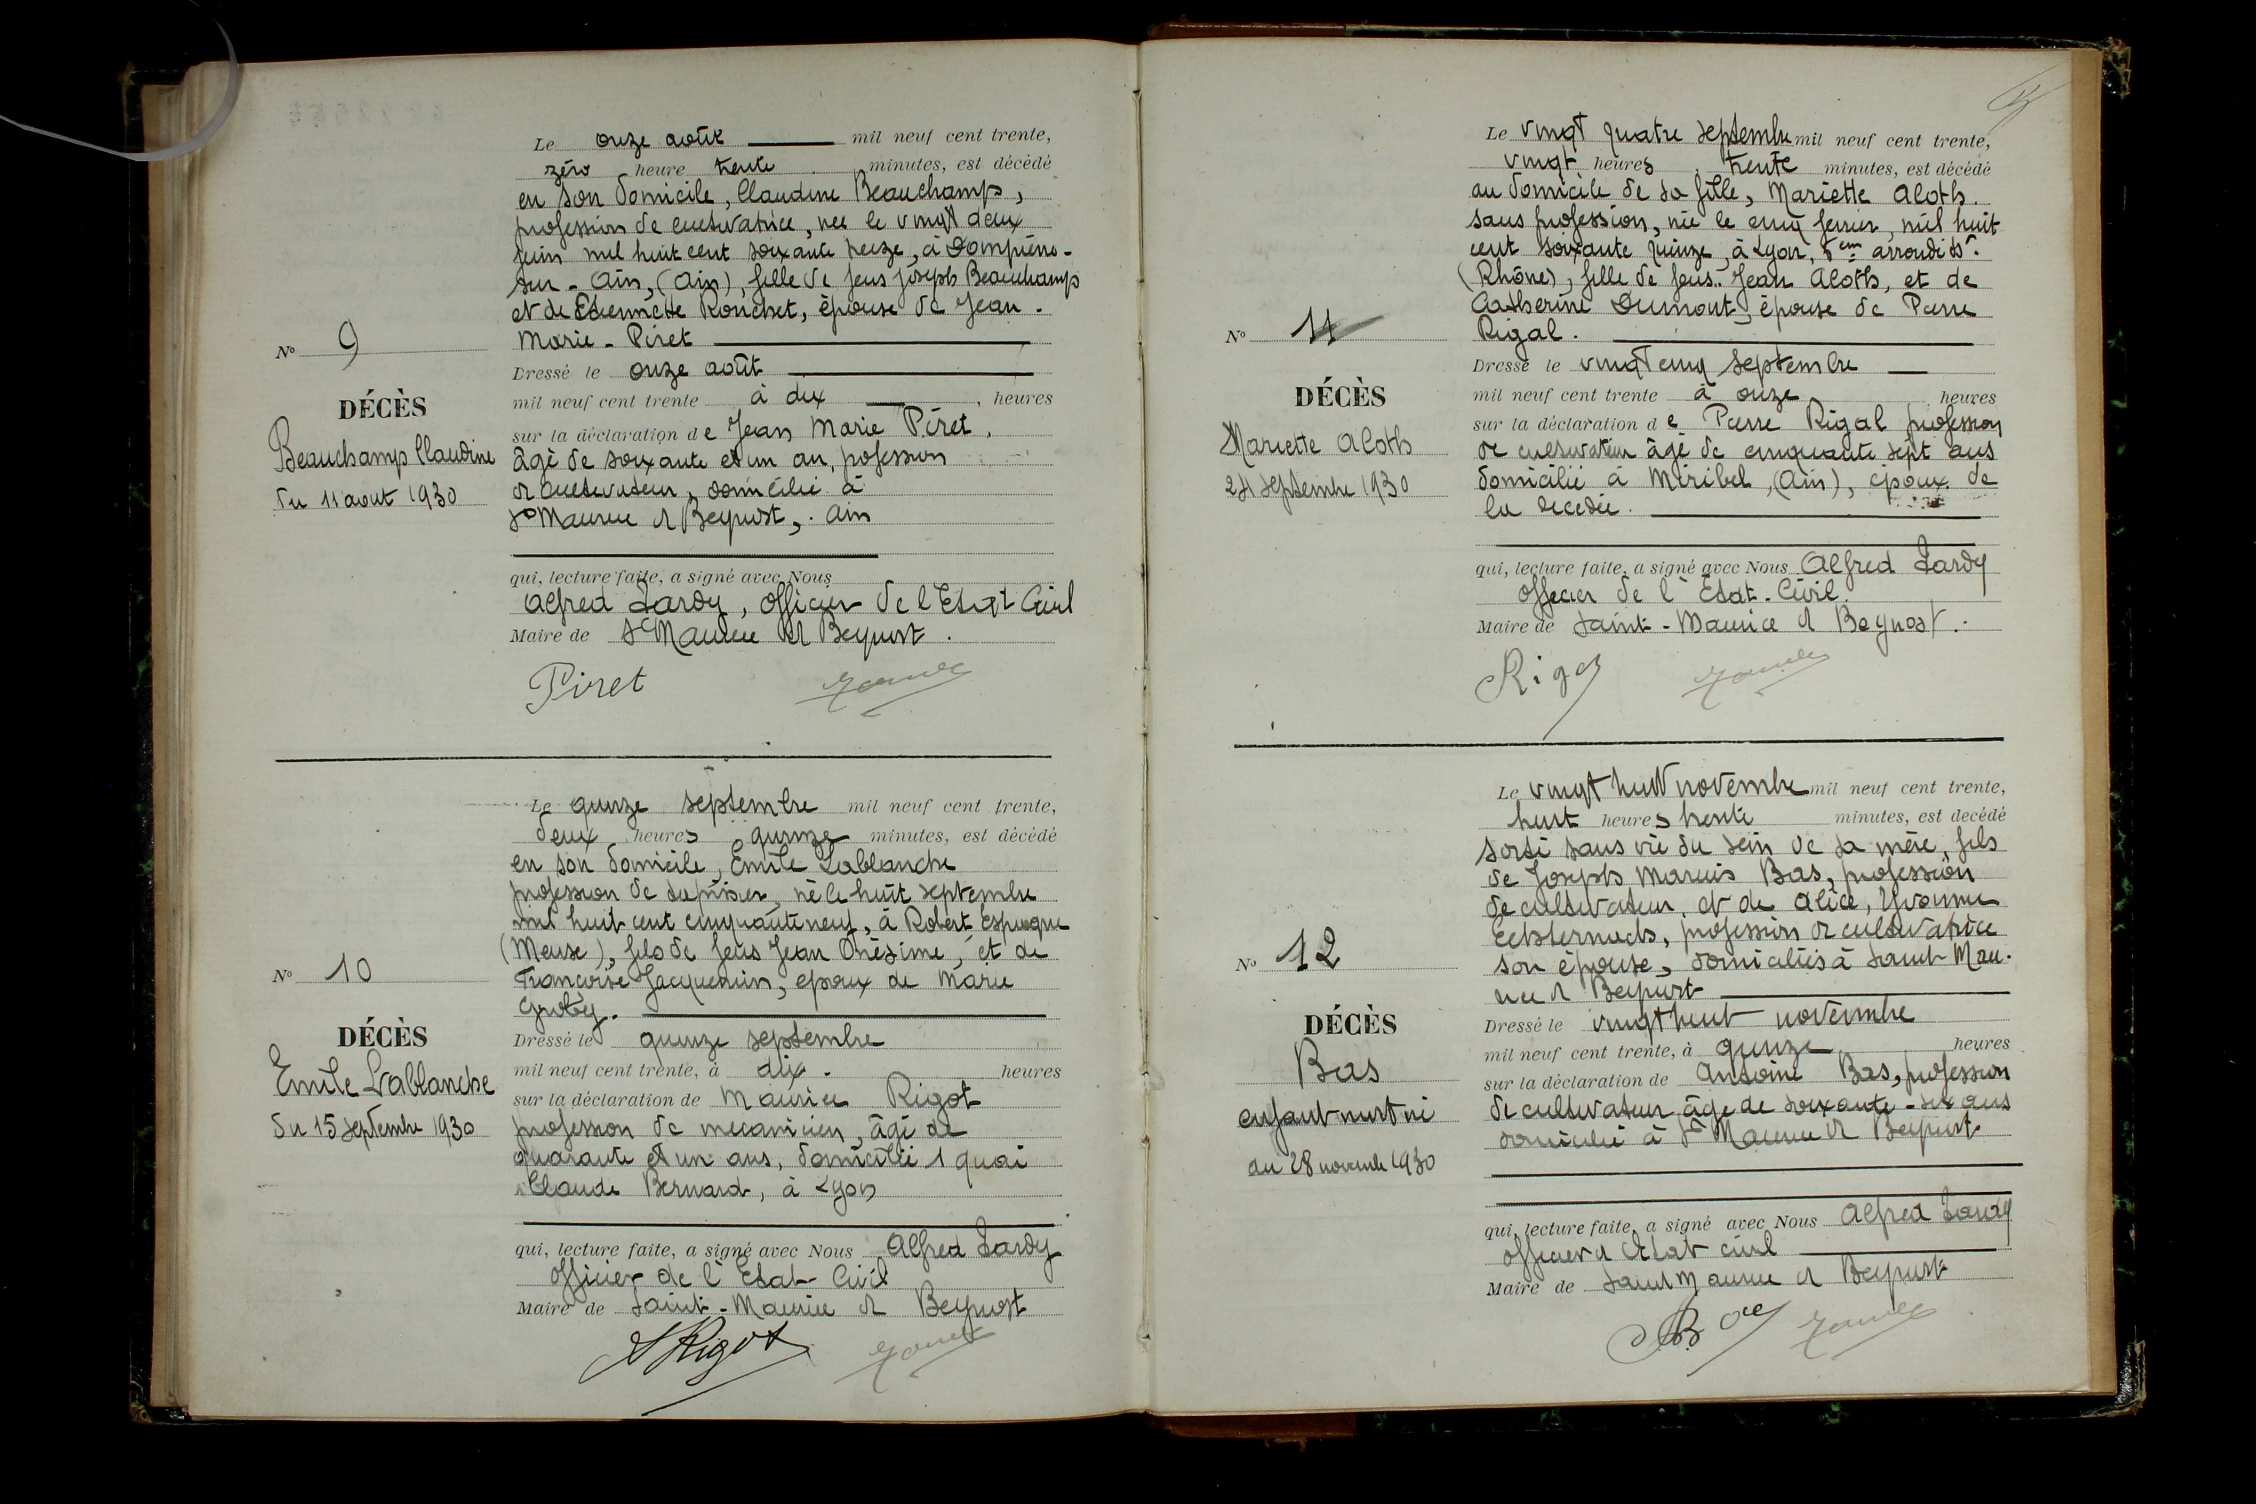 Le onze août mil neuf cent trente,
zéro heure trente minutes, est décédé
en son domicile, Claudine Beauchamps,
profession de cultivatrice, née le vingt deux
juin mil huit cent soixante treize, à Dompierre-
sur-Ain, (Ain), fille de feus Joseph Beauchamps
et de Etiennette Ronchet, épouse de Jean
Marie-Piret
No 9
DÉCÈS
Beauchamps Claudine
du 11 aout 1930
Dressé le onze août
mil neuf cent trente à dix heures
sur la déclaration de Jean Marie Piret,
âgé de soixante et un an, profession
de cultivateur, domicilié à
St Maurice de Beynost, Ain
qui, lecture faite, a signé avec Nous
Alfred Lardy, officier de l'Etat Civil
Maire de St Maurice de Beynost.
Piret
Le quinze septembre mil neuf cent trente,
deux heures quinze minutes, est décédé
en son domicile, Emile Lablanche
profession de tapissier, né le huit septembre
mil huit cent cinquante neuf, à Robert Espagne
(Meuse), fils de feus Jean Onésime, et de
Françoise Jacquemin, epoux de Marie
No 10
DÉCÈS
Emile Lablanche
du 15 septembre 1930
Dressé le quinze septembre
mil neuf cent trente, à dix. heures
sur la déclaration de Maurice Rigot
profession de mecanicien, âgé de
quarante et un ans, domicilié 1 quai
Claude Bernard, à Lyon
qui, lecture faite, a signé avec Nous Alfred Lardy
officier de l'Etat Civil
Maire de Saint-Maurice de Beynost
Rigot
Le vingt quatre septembre mil neuf cent trente,
vingt heures trente minutes, est décédé
au domicile de sa fille, Mariette Aloth.
sans profession, née le cinq fevrier, mil huit
cent soixante quinze, à Lyon, arrondisst.
(Rhône), fille de feus.. Jean Aloth, et de
Catherine Dumont, épouse de Pierre
Rigal.
No 11
DÉCÈS
Mariette Aloth
24 septembre 1930
Dressé le vingt cinq septembre
mil neuf cent trente à onze heures
sur la déclaration de Pierre Rigal profession
de cultivateur âgé de cinquante sept ans
domicilié à Miribel, (Ain), époux de
la décédée.
qui, lecture faite, a signé avec Nous Alfred Lardy
officier de l'Etat-Civil.
Maire de Saint-Maurice de Beynost.-
Rigal
Le vingt huit novembre mil neuf cent trente,
huit heures trente minutes, est decédé
sorti sans vie du sein de sa mère, fils
de Joseph Marius Bas, profession
de cultivateur, et de Alice, Yvonne
profession de cultivatrice
son épouse, domiciliés à Saint Mau-
rice de Beynost
No 12
DÉCÈS
Bas
enfant mort né
du 28 novembre 1930
Dressé le vingt huit novembre
mil neuf cent trente, à quinze heures
sur la déclaration de Antoine Bas, profession
de cultivateur âgé de soixante-six ans
domicilié à St Maurice de Beynost
qui, lecture faite, a signé avec Nous Alfred Lardy
officier d'Etat civil
Maire de Saint Maurice de Beynost
Bas